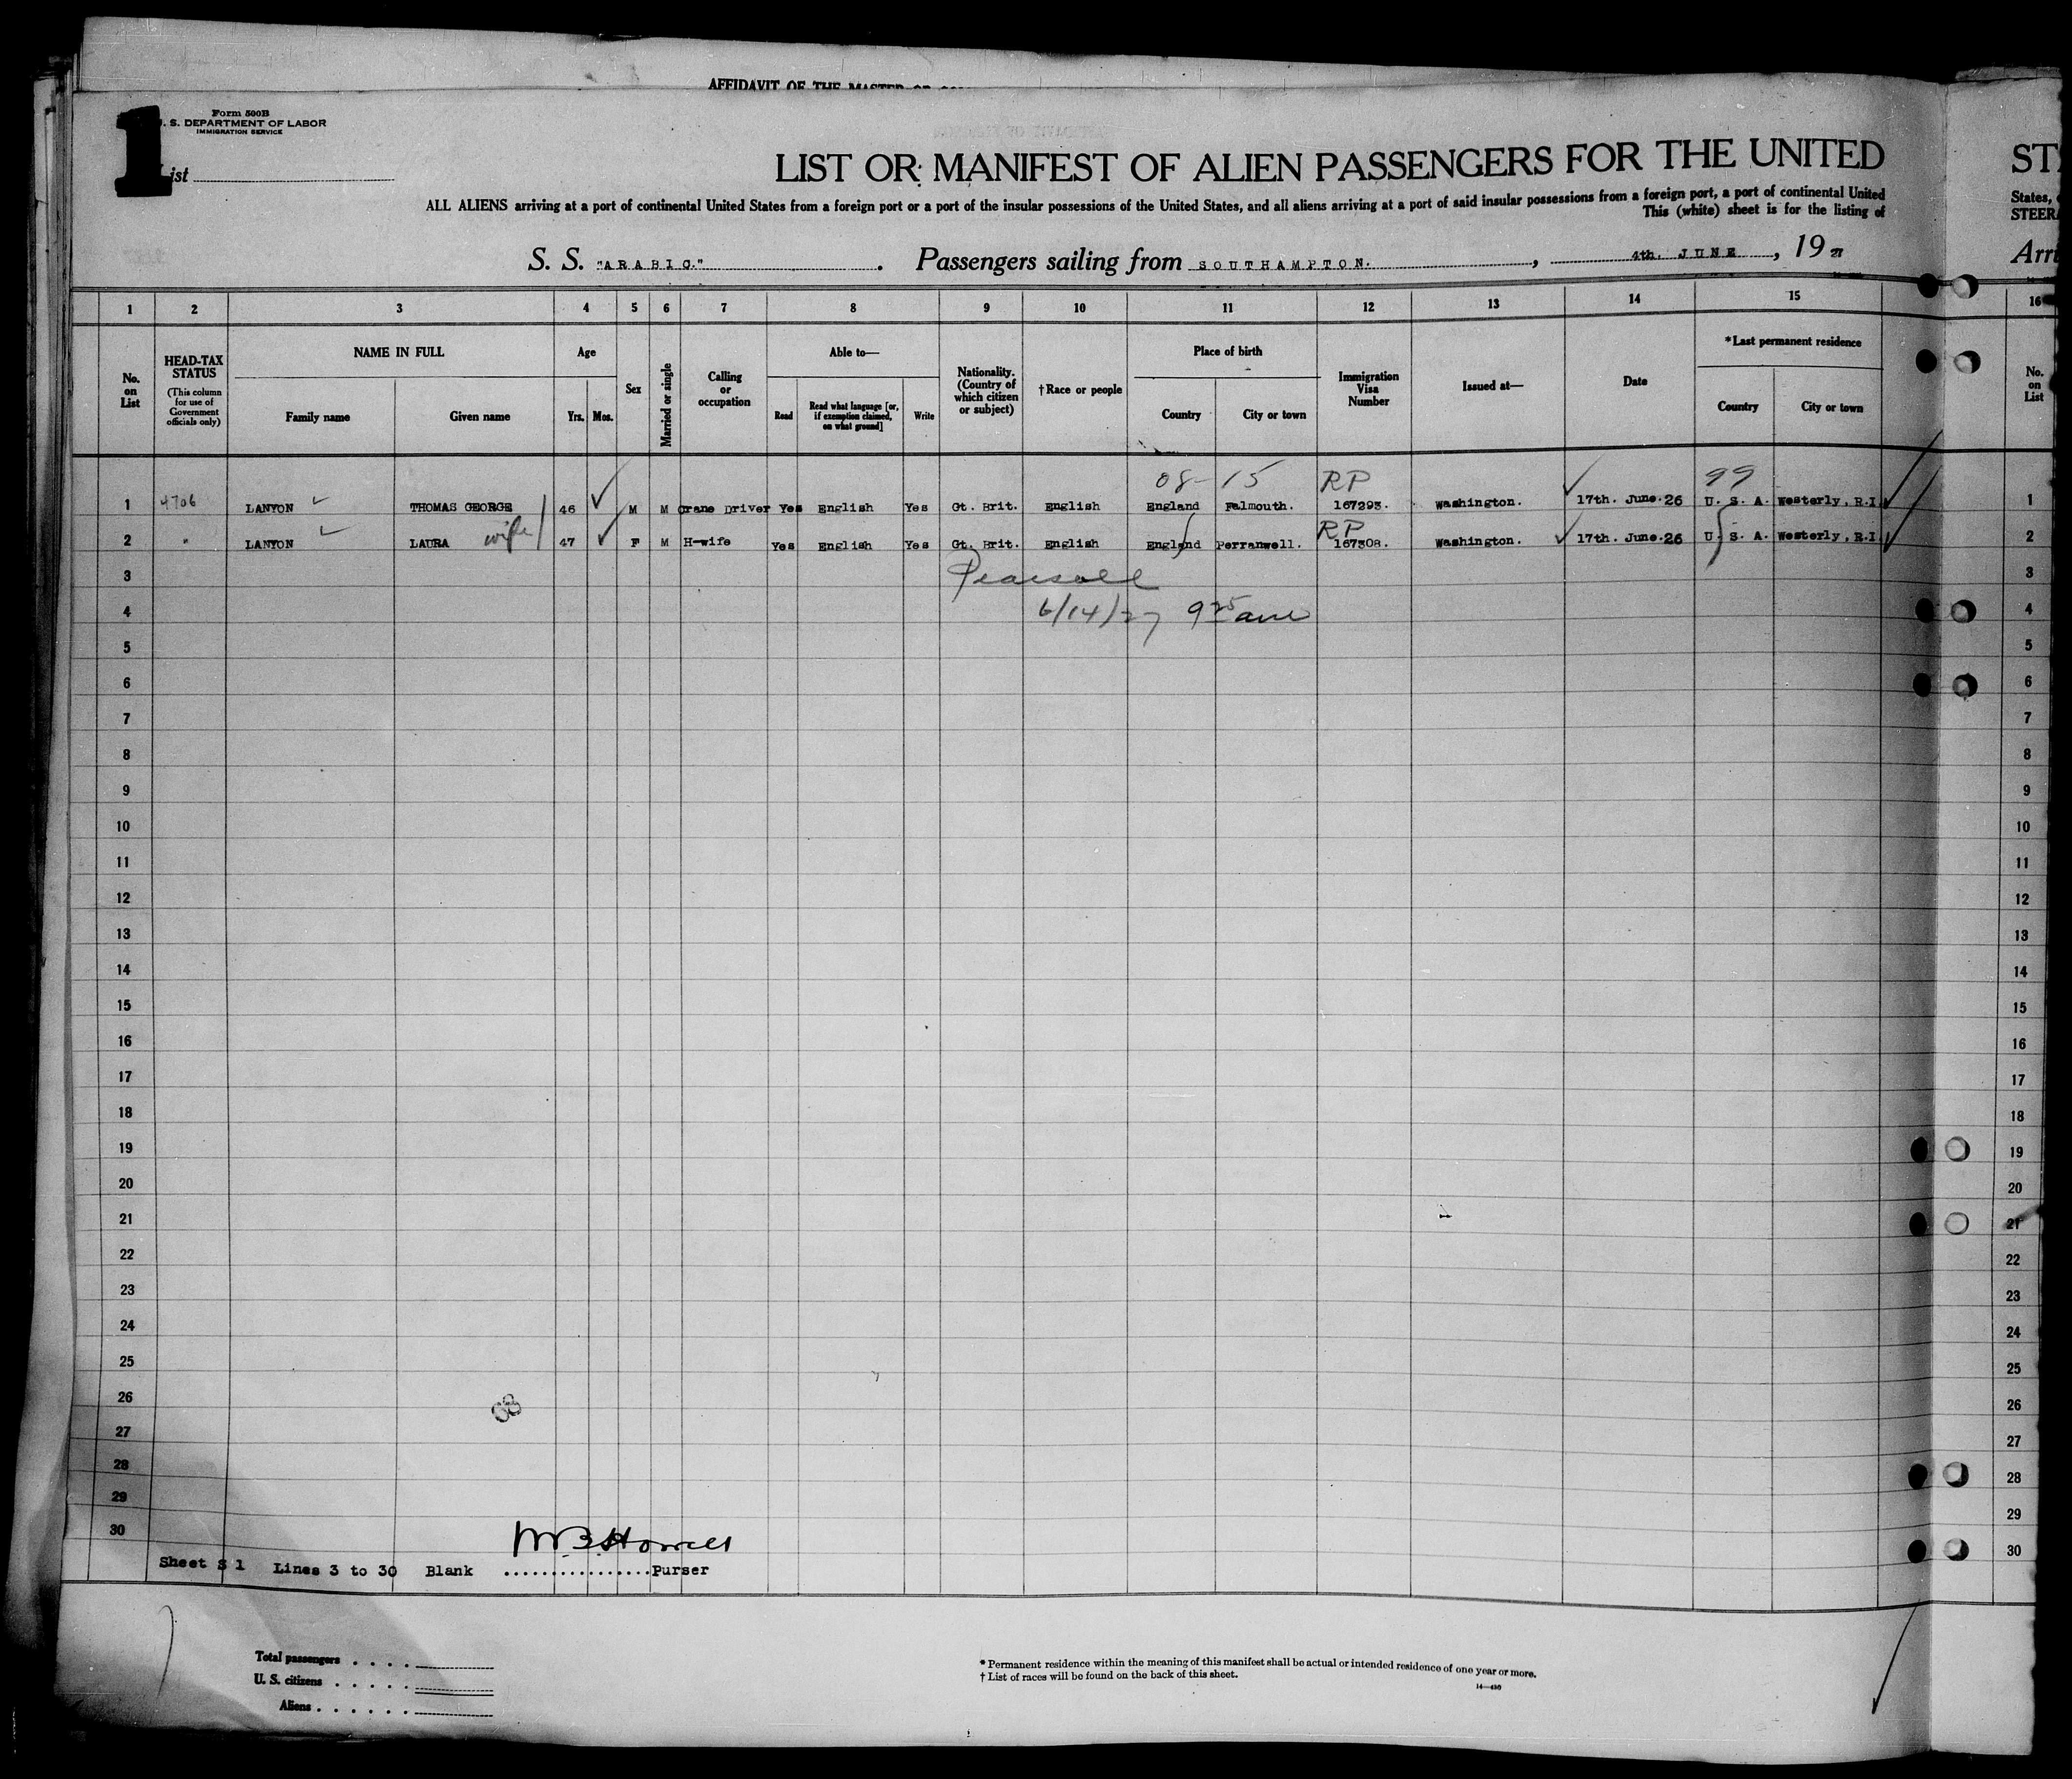 AFFIDAVIT OF THE MASTER OR
1
Form 500B
U. S. DEPARTMENT OF LABOR
IMMIGRATION SERVICE
List
LIST OR MANIFEST OF ALIEN PASSENGERS FOR THE UNITED
ALL ALIENS arriving at a port of continental United States from a foreign port or a port of the insular possessions of the United States, and all aliens arriving at a port of said insular possessions from a foreign port, a port of continental United
This (white) sheet is for the listing of
S. S. "ARABIC." . Passengers sailing from SOUTHAMPTON. , 4th. JUNE , 19 27
STA
States,
STEERA
Arri
1 2 3 4 5 6 7 8 9 10 11 12 13 14 15 16
No. on List
HEAD-TAX STATUS
(This column for use of Government officials only)
NAME IN FULL
Family name Given name
Age
Yrs. Mos.
Sex
Married or single
Calling or occupation
Able to—
Read
Read what language [or, if exemption claimed, on what ground]
Write
Nationality. (Country of which citizen or subject)
†Race or people
Place of birth
Country City or town
Immigration Visa Number
Issued at—
Date
*Last permanent residence
Country City or town
No. on List
08-15 RP 99
1 4706 LANYON THOMAS GEORGE 46 M M Crane Driver Yes English Yes Gt. Brit. English England Falmouth. 167293. Washington. 17th. June.26 U. S. A. Westerly, R.I. 1
wife RP
2 " LANYON LAURA 47 F M H-wife Yes English Yes Gt. Brit. English England Perranwell. 167308. Washington. 17th. June.26 U. S. A. Westerly, R.I. 2
3 Pearsall 3
4 6/14/27 9 25 am 4
5 5
6 6
7 7
8 8
9 9
10 10
11 11
12 12
13 13
14 14
15 15
16 16
17 17
18 18
19 19
20 20
21 21
22 22
23 23
24 24
25 25
26 26
27 27
28 28
29 29
30 30
Sheet S 1 Lines 3 to 30 Blank ................Purser
Total passengers . . . .
U. S. citizens . . . . .
Aliens . . . . . .
* Permanent residence within the meaning of this manifest shall be actual or intended residence of one year or more.
† List of races will be found on the back of this sheet.
14—430